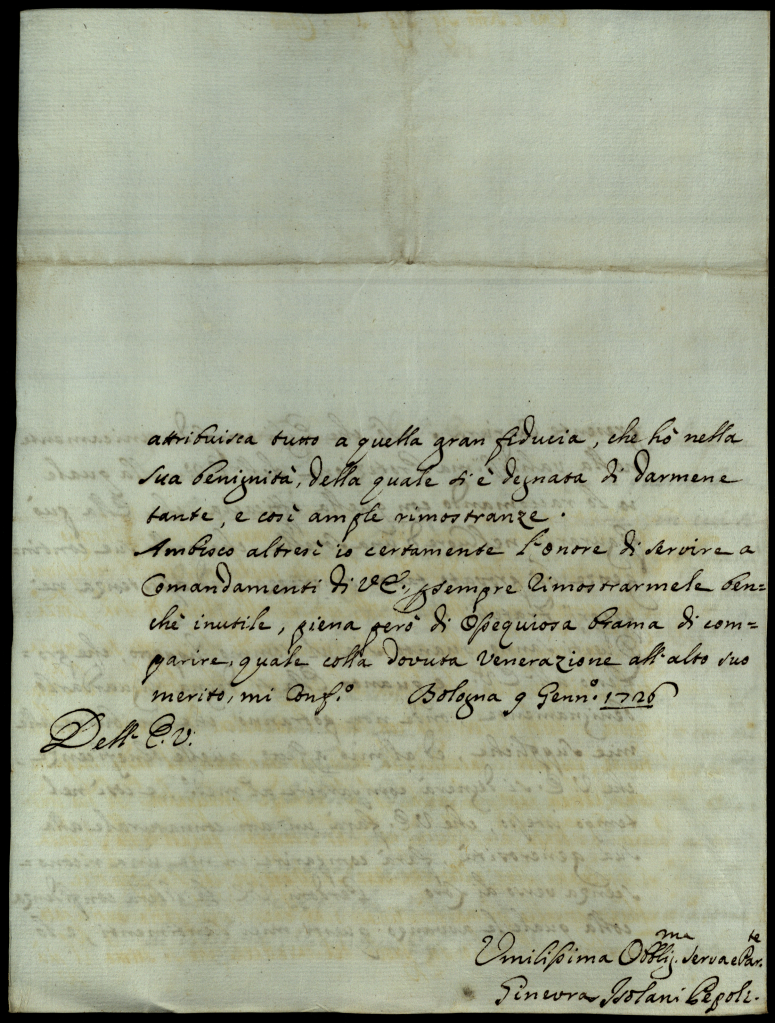 attribuisca tutto a quella gran fiducia, che hò nella
sua benignità, della quale si è degnata di darmene
tante, e così ample rimostranze.
Ambisco altresì io certamente l'onore di servire a
Comandamenti di V.E. sempre rimostrarmele ben=
chè inutile, piena però di Ossequiosa brama di com=
parire, quale colla dovuta Venerazione all'alto suo
merito, mi Conf.o Bologna 9 Genn.o 1726
Dell' E.V.
Umilissima Obblig.ma Serva e Par.te
Ginevra Isolani Pepoli.